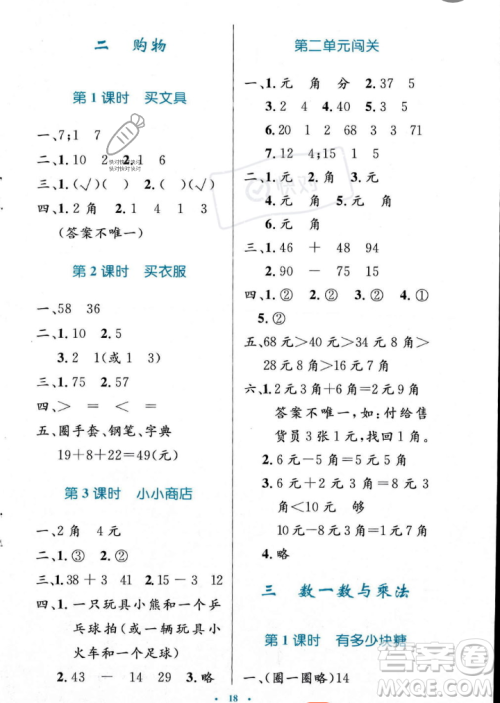 二 购物
第1课时 买文具
一、7;1 7
二、1.10 2 2.1 6
三、( )(√)( )(√)
四、1.2角 2.1 4 1 3
(答案不唯一)
第2课时 买衣服
一、58 36
二、1.10 2.5
3.2 1(或1 3)
三、1.75 2.57
四、> = < =
五、圈手套、钢笔、字典
19+8+22=49(元)
第3课时 小小商店
一、2角 4元
二、1.③ 2.②
三、1.38+3 41 2.15-3 12
四、1.一只玩具小熊和一个乒
乓球拍(或一只玩具小
火车和一个足球)
2.43 29 3.略
第二单元闯关
一、1.元 角 分 2.37 5
3.2 4 4.51 5.2
6.20 18 28 元
7.12 4 15
二、1.元 角 元 元
2.元 角
三、1.46 + 48
2.90 - 15
四、1.② 2.② 3.① 4.②
5.②
五、68元>40元>34元8角>
28元8角>8元8角
六、1.2元3角+6角=2元9角
答案不唯一,如:付给售
货员3张1元,找回1角。
2.6元-5元=1元
8元-6元=2元 够
10元-8元2角=1元8角
4.略
三 数一数与乘法
第1课时 有多少块糖
一、(圈一圈略)14
18
快对
答案圈
MXQE.COM